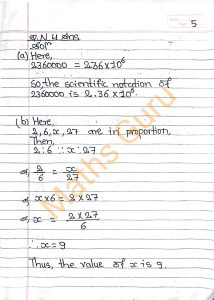 5
प्र.नं. 4 का
Soln
(a) Here,
2360000 = 2.36×10⁶
So, the scientific notation of
2360000 is 2.36×10⁶.
(b) Here,
2,6,x,27 are in proportion.
Then,
2:6::x:27
or, 2/6 = x/27
or, x×6 = 2×27
or, x = 2×27/6
∴ x=9
Thus, the value of x is 9.
Maths Guru